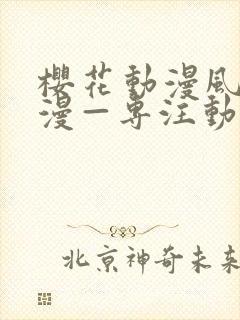 櫻花動漫風
漫—專注動
北京神奇未来